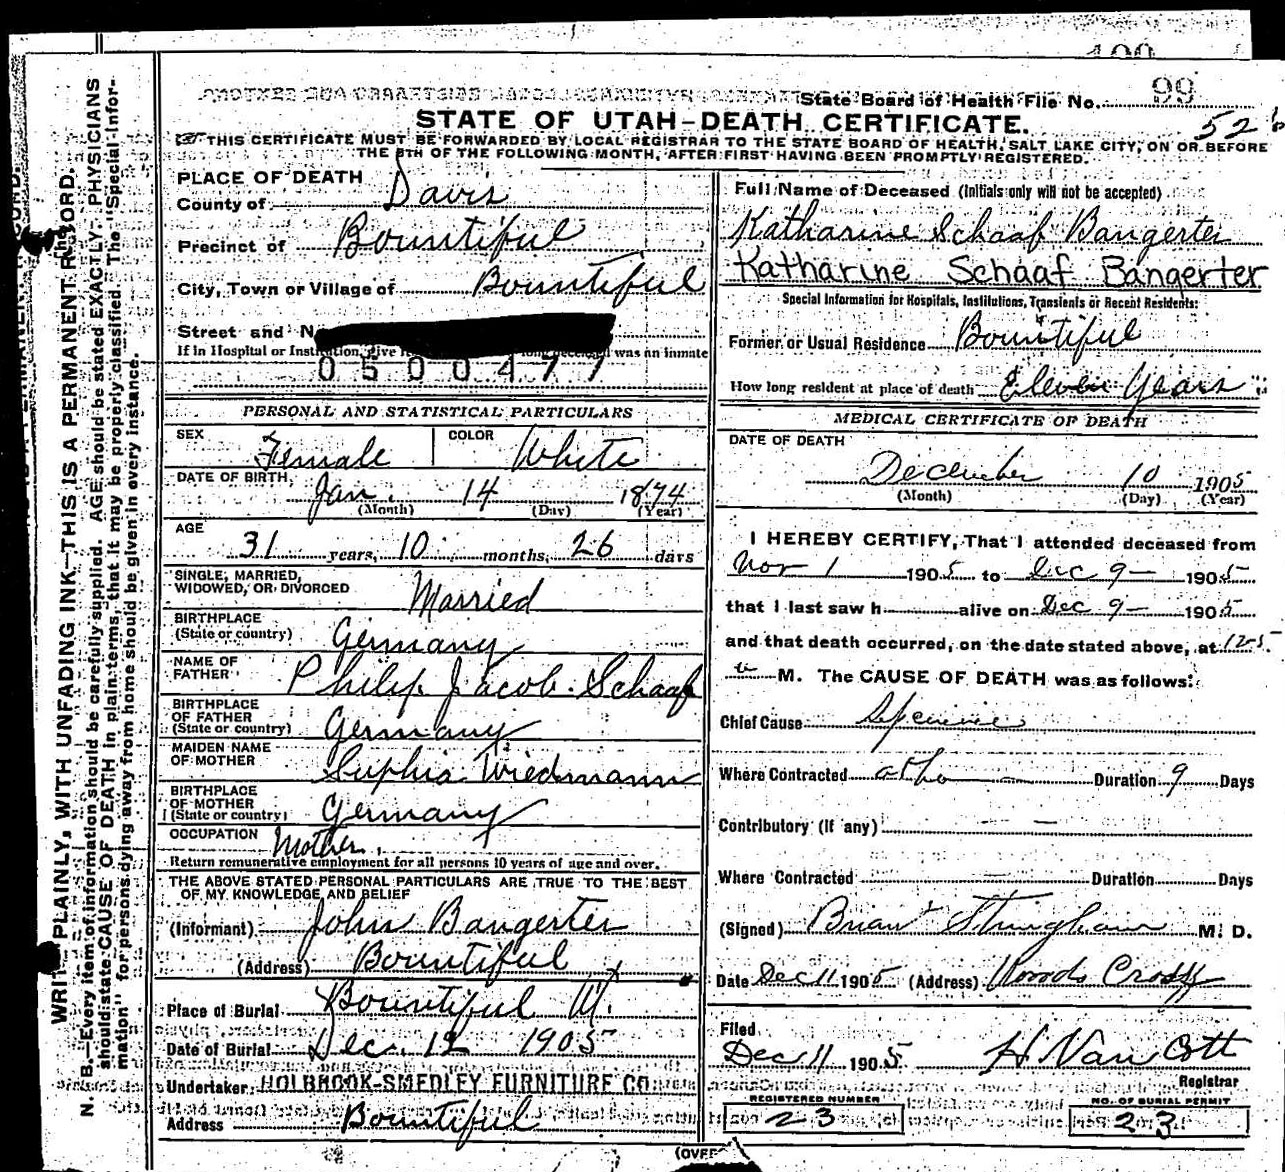 99
State Board of Health File No.
526
STATE OF UTAH-DEATH CERTIFICATE.
THIS CERTIFICATE MUST BE FORWARDED BY LOCAL REGISTRAR TO THE STATE BOARD OF HEALTH, SALT LAKE CITY, ON OR BEFORE
THE 5TH OF THE FOLLOWING MONTH, AFTER FIRST HAVING BEEN PROMPTLY REGISTERED.
PLACE OF DEATH
County of Davis
Precinct of Bountiful
City, Town or Village of Bountiful
Street and
If in Hospital or Institution, give long deceased was an inmate
0500477
PERSONAL AND STATISTICAL PARTICULARS
SEX Female COLOR White
DATE OF BIRTH, Jan. 14 1874
(Month) (Day) (Year)
AGE
31 years, 10 months, 26 days
SINGLE, MARRIED,
WIDOWED, OR DIVORCED Married
BIRTHPLACE
(State or country) Germany
NAME OF
FATHER Philip Jacob Schaaf
BIRTHPLACE
OF FATHER
(State or country) Germany
MAIDEN NAME
OF MOTHER Suphia Wiedmann
BIRTHPLACE
OF MOTHER
(State or country) Germany
OCCUPATION Mother.
Return remunerative employment for all persons 10 years of age and over.
THE ABOVE STATED PERSONAL PARTICULARS ARE TRUE TO THE BEST
OF MY KNOWLEDGE AND BELIEF
(Informant) John Bangerter
(Address) Bountiful
Place of Burial Bountiful Ut.
Date of Burial Dec. 12 1905
Undertaker HOLBROOK-SMEDLEY FURNITURE CO.
Address Bountiful
Full Name of Deceased (Initials only will not be accepted)
Katharine Schaaf Bangerter
Katharine Schaaf Bangerter
Special Information for Hospitals, Institutions, Transients or Recent Residents:
Former or Usual Residence Bountiful
How long resident at place of death Eleven Years
MEDICAL CERTIFICATE OF DEATH
DATE OF DEATH
December 10 1905
(Month) (Day) (Year)
I HEREBY CERTIFY, That I attended deceased from
Nov 1 1905 to Dec 9 1905
that I last saw h alive on Dec 9 1905
and that death occurred, on the date stated above, at 12.5.
M. The CAUSE OF DEATH was as follows:
Chief Cause
Where Contracted Duration 9 Days
Contributory (if any)
Where Contracted Duration Days
(Signed) Brian Stringham M. D.
Date Dec 11 1905 (Address) Woods Cross
Filed
Dec 11 1905 H Van Cott
Registrar
REGISTERED NUMBER NO. OF BURIAL PERMIT
23 23
(OVER
N. B.—Every item of information should be carefully supplied. AGE should be stated EXACTLY. PHYSICIANS
should state CAUSE OF DEATH in plain terms, that it may be properly classified. The "Special Infor-
mation" for persons dying away from home should be given in every instance.
WRITE PLAINLY, WITH UNFADING INK—THIS IS A PERMANENT RECORD.